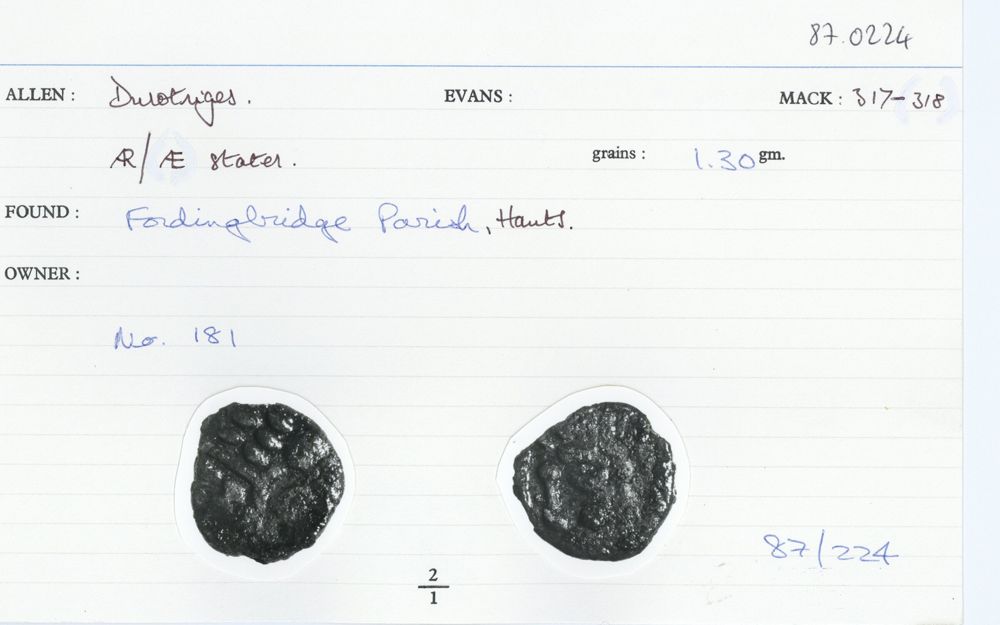 87.0224
ALLEN : Durotriges. EVANS : MACK : 317-318
ÆR/Æ stater. grains : 1.30 gm.
FOUND : Fordingbridge Parish, Hants.
OWNER :
No. 181
87/224
2
1